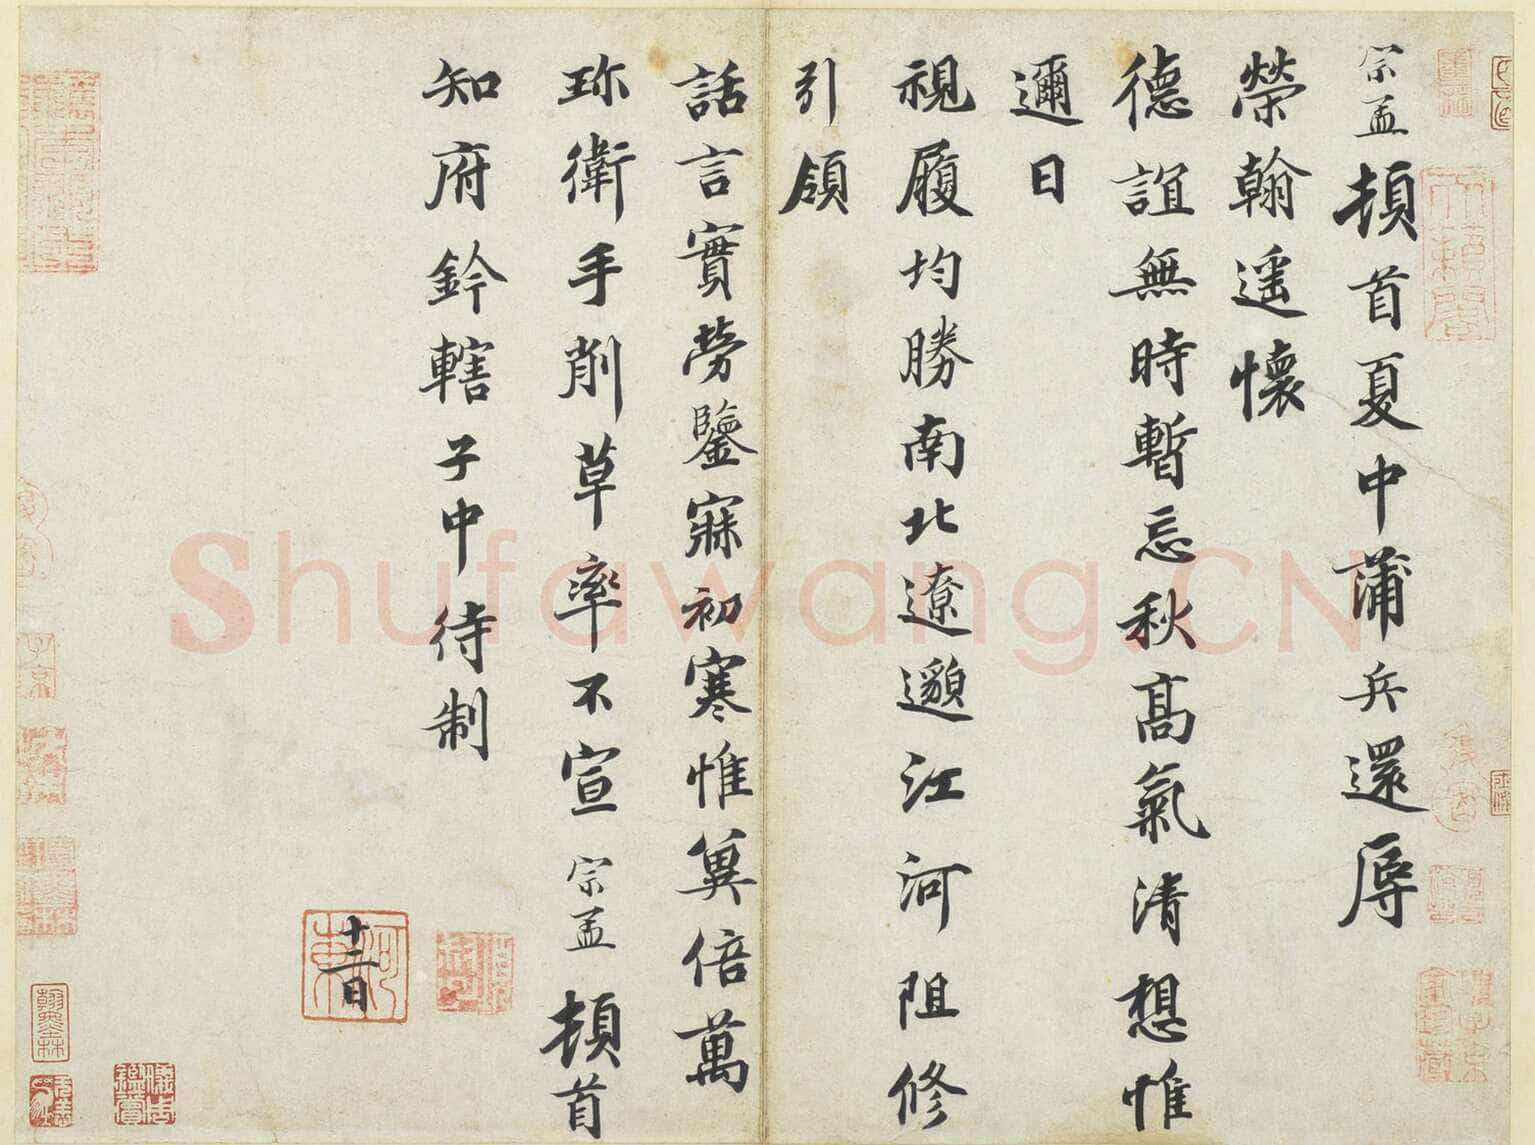 宗孟頓首夏中蒲兵還辱
榮翰遥懷
德誼無時暫忘秋髙氣清想惟
邇日
視履均勝南北遼邈江河阻修
引領
話言實勞鑒寐初寒惟兾倍萬
珎衛手削草率不宣宗孟頓首
知府鈐轄子中待制
十二日
河東
Shufawang.CN